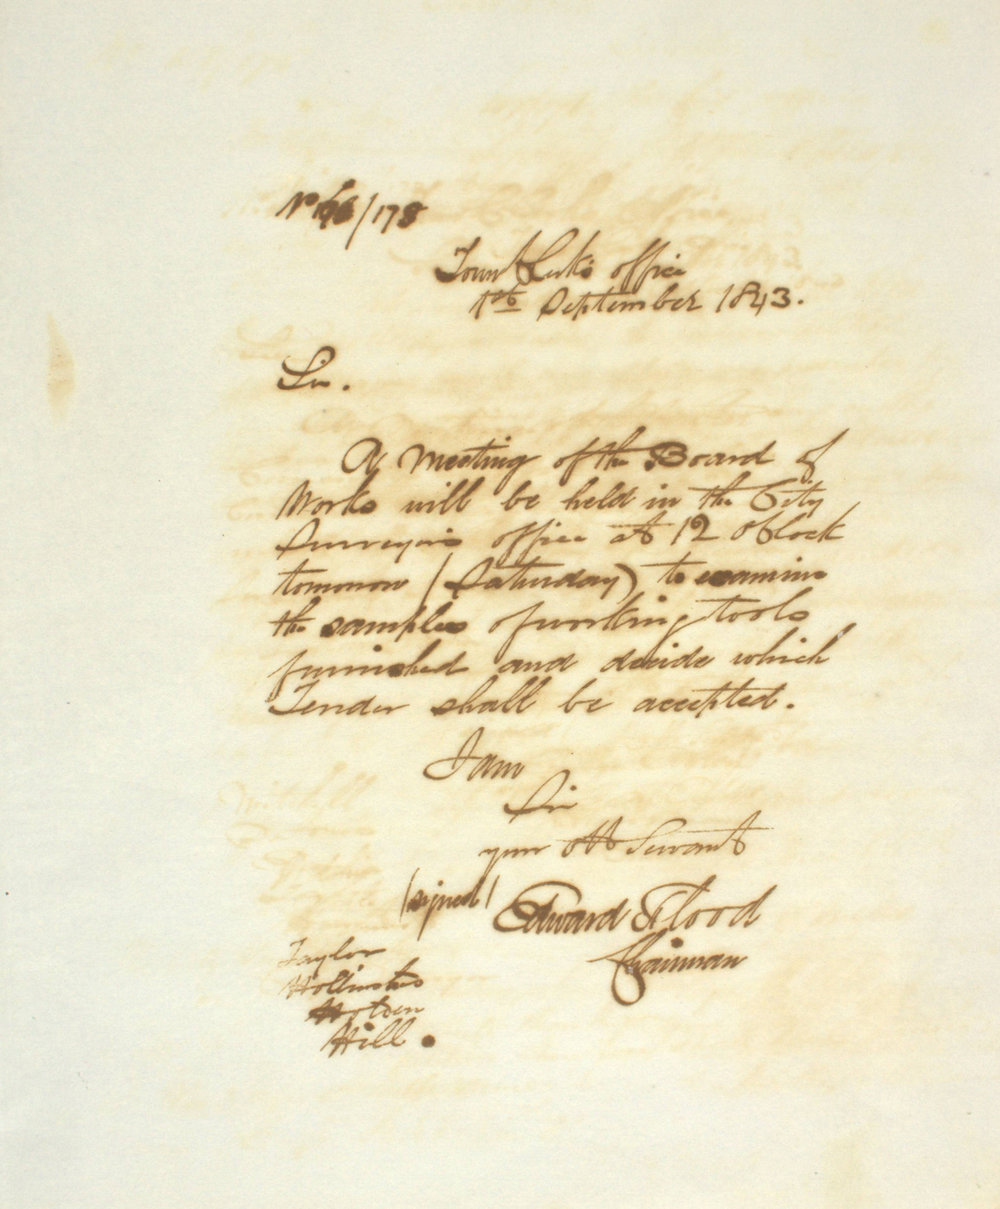 No 176/178
Town Clerk's office
1st September 1843.
Sir.
A Meeting of the Board of
Works will be held in the City
Surveyors office at 12 oClock
tomorrow (Saturday) to examine
the samples of working tools
furnished and decide which
Tender shall be accepted.
I am
Sir
your Obt Servant
(signed) Edward Flood
Chairman
Taylor
Holden
Hill.